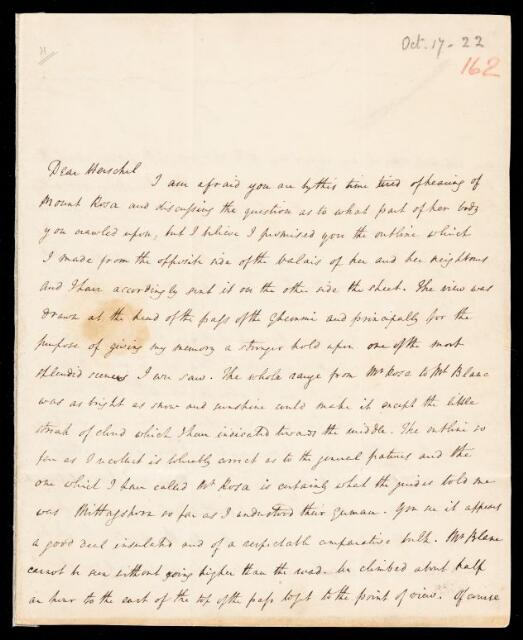 Oct. 17 - 22
162
Dear Herschel
I am afraid you are by this time tired of hearing of
Mount Rosa and discussing the question as to what part of her body
you crawled upon, but I believe I promised you the outline which
I made from the opposite side of the Valais of her and her neighbours
and I have accordingly sent it on the other side the sheet. The view was
drawn at the head of the pass of the Ghemmi and principally for the
purpose of giving my memory a stronger hold upon one of the most
splendid scenes I ever saw. The whole range from Mt Rosa to Mt Blanc
was as bright as snow and sunshine could make it except the little
streak of cloud which I have indicated towards the middle. The outline so
far as I recollect is tolerably correct as to the general features and the
one which I have called Mt Rosa is certainly what the guides told me
was Mittaghorn so far as I understood their German. You see it appears
a good deal insulated and of a respectable comparative bulk. Mt Blanc
cannot be seen without going higher than the road. We climbed about half
an hour to the east of the top of the pass to get to the point of view. Of course